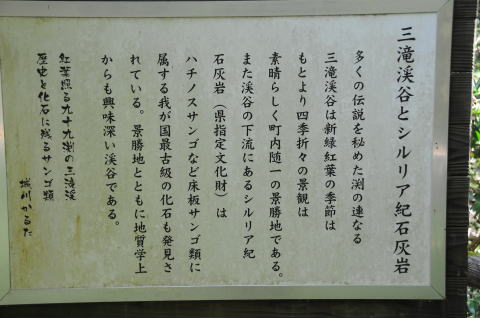 三滝渓谷とシルリア紀石灰岩
多くの伝説を秘めた渕の連なる
三滝渓谷は新緑紅葉の季節は
もとより四季折々の景観は
素晴らしく町内随一の景勝地である。
また渓谷の下流にあるシルリア紀
石灰岩（県指定文化財）は
ハチノスサンゴなど床板サンゴ類に
属する我が国最古級の化石も発見さ
れている。景勝地とともに地質学上
からも興味深い渓谷である。
紅葉照る九十九渕の三滝渓
歴史と化石に残るサンゴ類
城川かるた